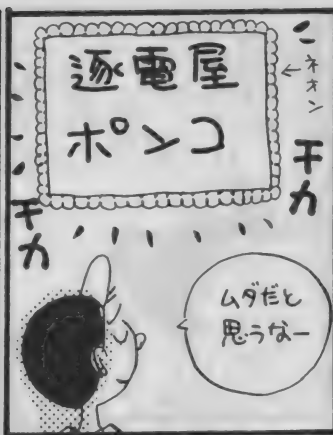 逐電屋
ポンコ
ネオン
チカ
チカ
ムダだと
思うなー